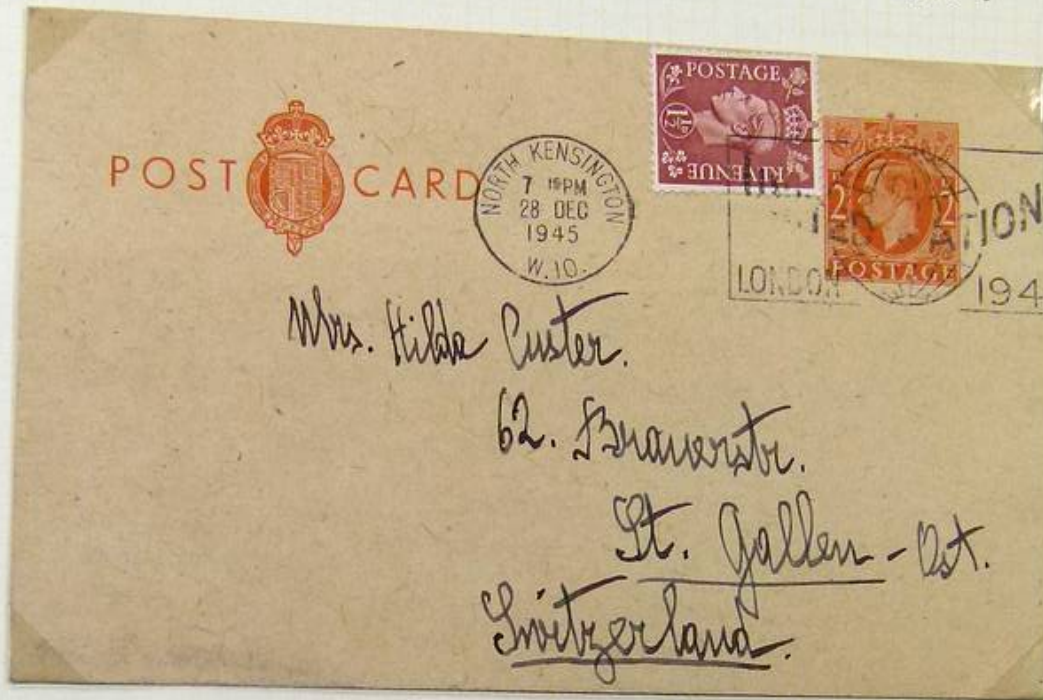 POST CARD
NORTH KENSINGTON
7 15 PM
28 DEC
1945
W.10.
POSTAGE
1½D
REVENUE
2 2
POSTAGE
ATION
LONDON 194
Mrs. Hilda Custer.
62. Brauerstr.
St. Gallen - Ost.
Switzerland.